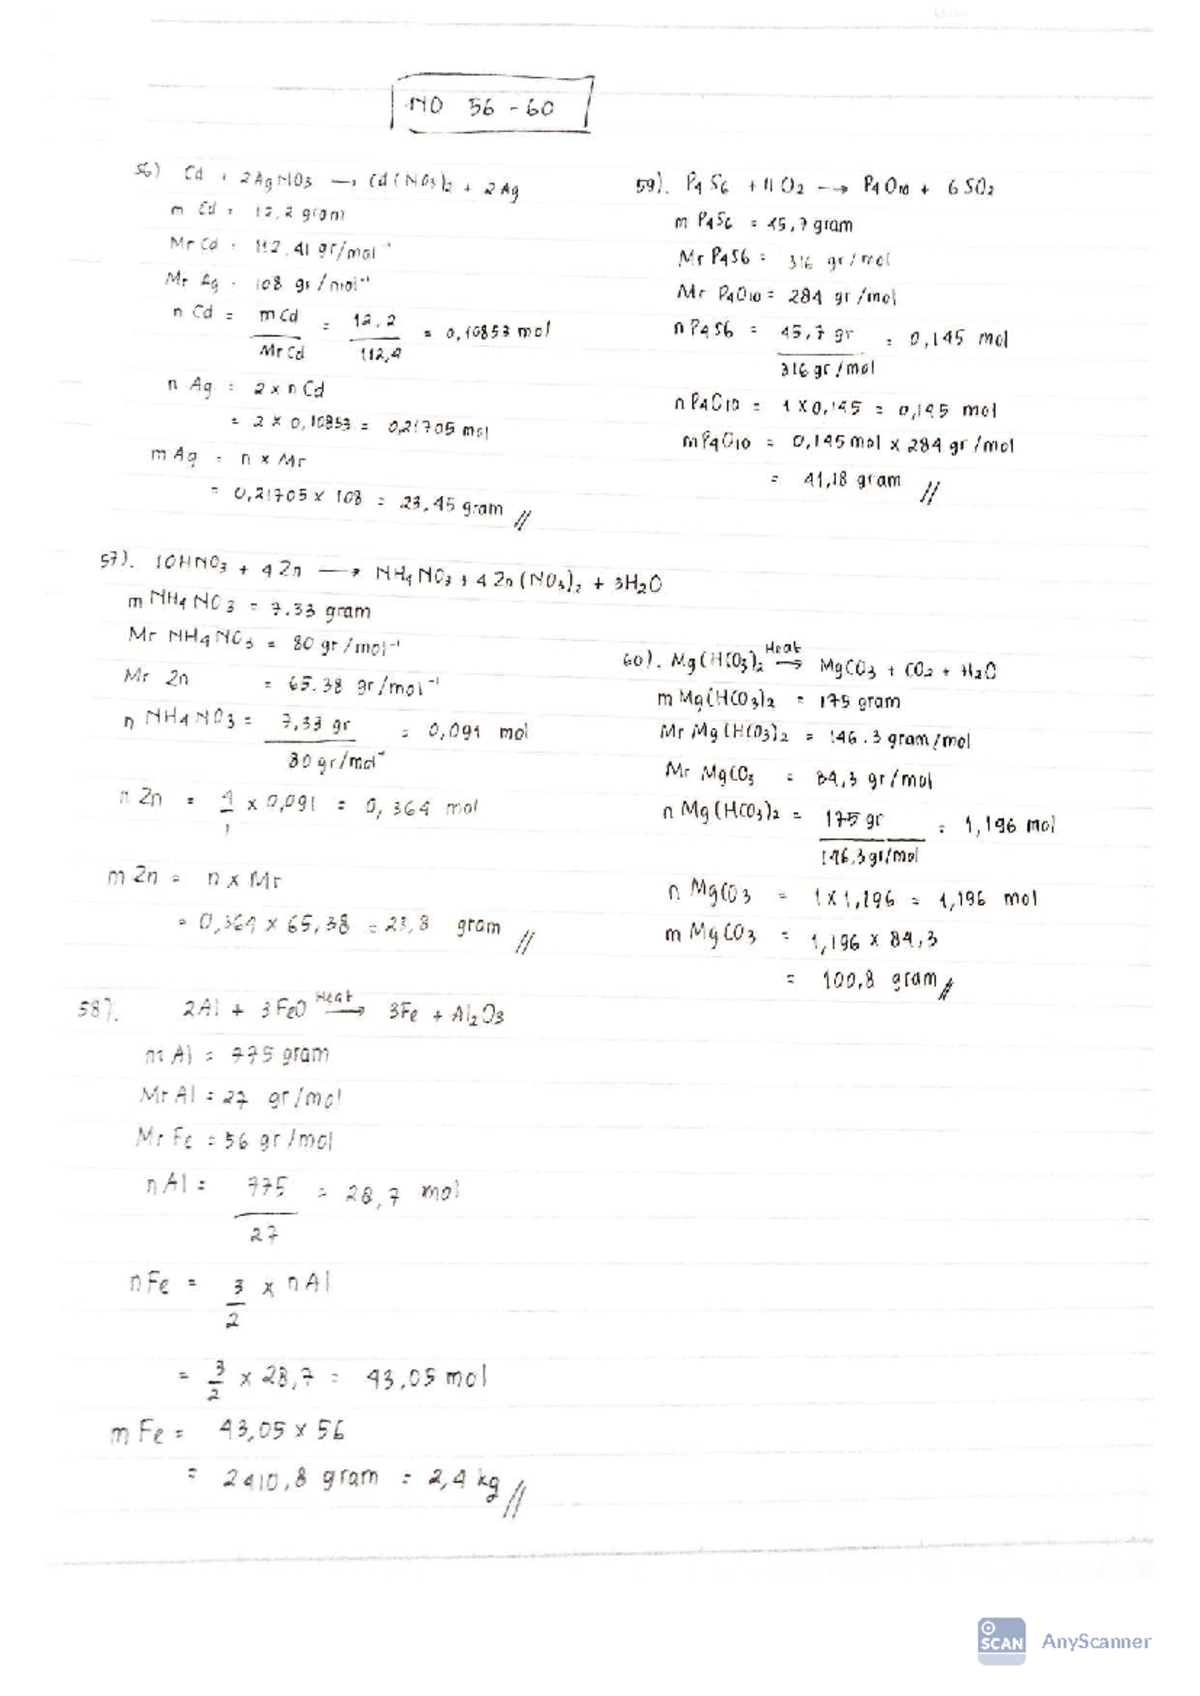 NO 56 - 60
56) Cd + 2AgNO3 → Cd(NO3)2 + 2Ag
m Cd = 12,2 gram
Mr Cd = 112,41 gr/mol⁻¹
Mr Ag = 108 gr/mol⁻¹
n Cd = m Cd / Mr Cd = 12,2 / 112,4 = 0,10853 mol
n Ag = 2 x n Cd
= 2 x 0,10853 = 0,21705 mol
m Ag = n x Mr
= 0,21705 x 108 = 23,45 gram //
59). P4S6 + 11O2 → P4O10 + 6SO2
m P4S6 = 45,7 gram
Mr P4S6 = 316 gr/mol
Mr P4O10 = 284 gr/mol
n P4S6 = 45,7 gr / 316 gr/mol = 0,145 mol
n P4O10 = 1 x 0,145 = 0,145 mol
m P4O10 = 0,145 mol x 284 gr/mol
= 41,18 gram //
57). 10HNO3 + 4Zn → NH4NO3 + 4Zn(NO3)2 + 3H2O
m NH4NO3 = 7.33 gram
Mr NH4NO3 = 80 gr/mol⁻¹
Mr Zn = 65.38 gr/mol⁻¹
n NH4NO3 = 7,33 gr / 80 gr/mol⁻ = 0,091 mol
n Zn = 4/1 x 0,091 = 0,364 mol
m Zn = n x Mr
= 0,364 x 65,38 = 23,8 gram //
60). Mg(HCO3)2 Heat → MgCO3 + CO2 + H2O
m Mg(HCO3)2 = 175 gram
Mr Mg(HCO3)2 = 146.3 gram/mol
Mr MgCO3 = 84,3 gr/mol
n Mg(HCO3)2 = 175 gr / 146,3 gr/mol = 1,196 mol
n MgCO3 = 1 x 1,196 = 1,196 mol
m MgCO3 = 1,196 x 84,3
= 100,8 gram //
58). 2Al + 3FeO Heat → 3Fe + Al2O3
m Al = 775 gram
Mr Al = 27 gr/mol
Mr Fe = 56 gr/mol
n Al = 775 / 27 = 28,7 mol
n Fe = 3/2 x n Al
= 3/2 x 28,7 = 43,05 mol
m Fe = 43,05 x 56
= 2410,8 gram = 2,4 kg //
SCAN AnyScanner